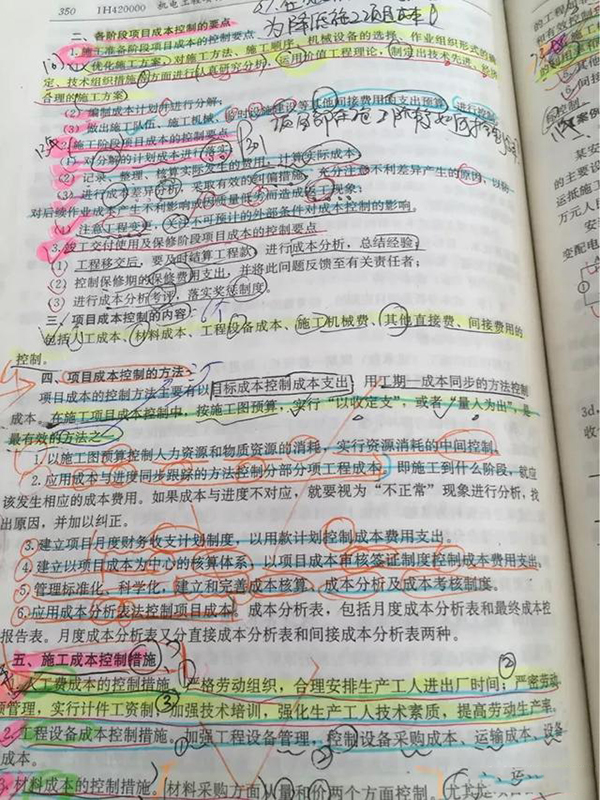 350 1H420000 机电工程项
为降低施工项目成本
二、各阶段项目成本控制的要点
1.施工准备阶段项目成本的控制要点
(1)优化施工方案,对施工方法、施工顺序、机械设备的选择、作业组织形式的确
定、技术组织措施等方面进行认真研究分析,运用价值工程理论,制定出技术先进、经济
合理的施工方案。
(2)编制成本计划并进行分解;
(3)做出施工队伍、施工机械、临时设施建设等其他间接费用的支出预算,进行控制。
2.施工阶段项目成本的控制要点
(1)对分解的计划成本进行落实;
(2)记录、整理、核算实际发生的费用,计算实际成本;
(3)进行成本差异分析,采取有效的纠偏措施,充分注意不利差异产生的原因,以防
对后续作业成本产生不利影响或因质量低劣而造成返工现象;
注意工程变更,关注不可预计的外部条件对成本控制的影响。
3.竣工交付使用及保修阶段项目成本的控制要点
(1)工程移交后,要及时结算工程款,进行成本分析,总结经验;
(2)控制保修期的保修费用支出,并将此问题反馈至有关责任者;
(3)进行成本分析考评,落实奖惩制度。
三、项目成本控制的内容
包括人工成本、材料成本、工程设备成本、施工机械费、其他直接费、间接费用的
控制。
四、项目成本控制的方法
项目成本的控制方法主要有以目标成本控制成本支出 用工期—成本同步的方法控制
成本。在施工项目成本控制中,按施工图预算,实行“以收定支”,或者“量入为出”,是
最有效的方法之一
1.以施工图预算控制人力资源和物质资源的消耗,实行资源消耗的中间控制。
2.应用成本与进度同步跟踪的方法控制分部分项工程成本。即施工到什么阶段,就应
该发生相应的成本费用。如果成本与进度不对应,就要视为“不正常”现象进行分析,找
出原因,并加以纠正。
3.建立项目月度财务收支计划制度,以用款计划控制成本费用支出。
4.建立以项目成本为中心的核算体系,以项目成本审核签证制度控制成本费用支出。
5.管理标准化、科学化,建立和完善成本核算、成本分析及成本考核制度。
6.应用成本分析表法控制项目成本。成本分析表,包括月度成本分析表和最终成本控
报告表。月度成本分析表又分直接成本分析表和间接成本分析表两种。
五、施工成本控制措施
人工费成本的控制措施。严格劳动组织,合理安排生产工人进出厂时间;②严密劳动
额管理,实行计件工资制;③加强技术培训,强化生产工人技术素质,提高劳动生产率。
2.工程设备成本控制措施。加强工程设备管理,控制设备采购成本、运输成本、设备
成本。
3.材料成本的控制措施。材料采购方面从量和价两个方面控制,尤其是